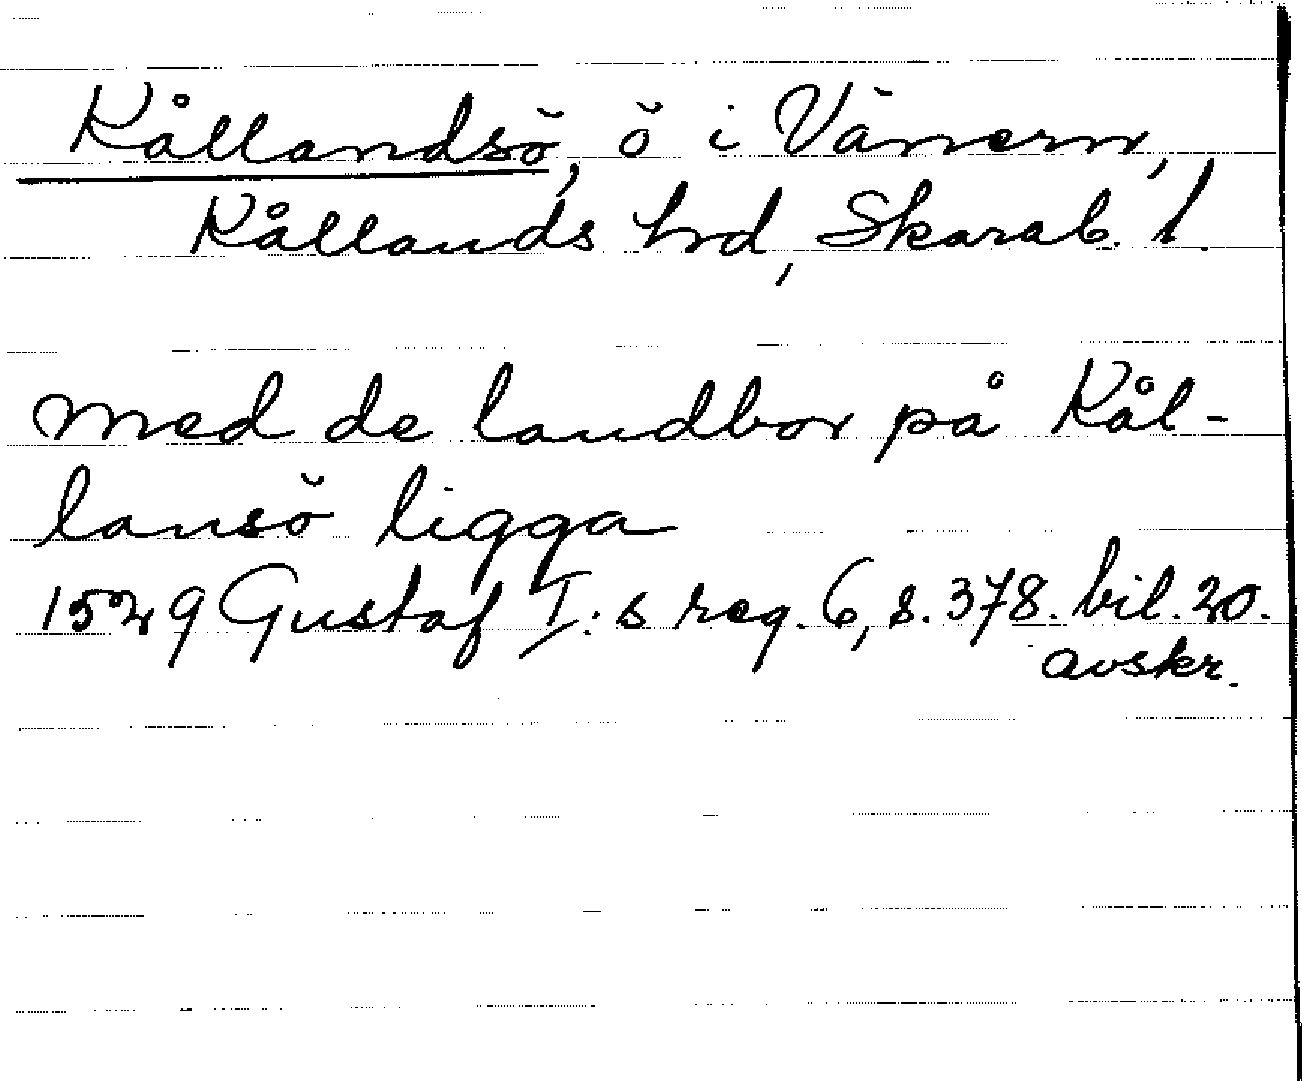 Kållandsö, ö i Vänern,
Kållands hrd, Skarab. l.
med de landbor på Kål-
lansö ligga
1529 Gustaf I:s reg. 6, s. 378. bil. 20.
avskr.